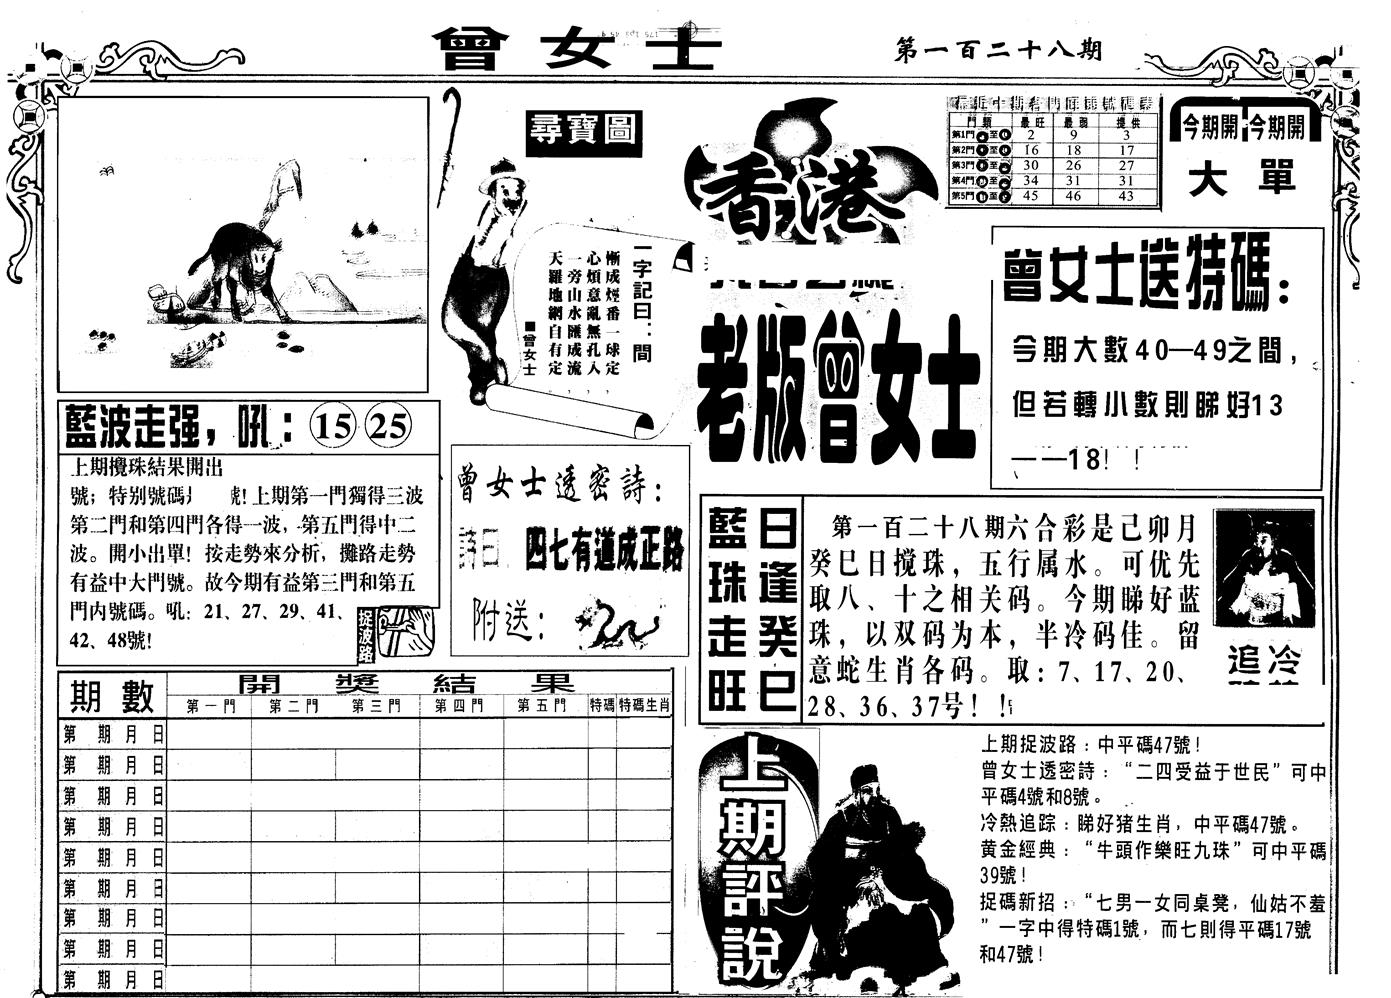 曾女士
第一百二十八期
尋寶圖
一字記曰：間
慚成煙番一球定
心煩意亂無孔入
一旁山水匯成流
天羅地網自有定
■曾女士
香港
老版曾女士
門類 最旺 最弱 提供
第1門 至 2 9 3
第2門 至 16 18 17
第3門 至 30 26 27
第4門 至 34 31 31
第5門 至 45 46 43
今期開 今期開
大 單
曾女士送特碼：
今期大數40—49之間，
但若轉小數則睇好13
——18！！
藍波走强，吼：15 25
上期攪珠結果開出
號；特别號碼 號！上期第一門獨得三波
第二門和第四門各得一波，第五門得中二
波。開小出單！按走勢來分析，攤路走勢
有益中大門號。故今期有益第三門和第五
門内號碼。吼：21、27、29、41、
42、48號！
捉波路
曾女士透密詩：
詩曰 四七有道成正路
附送：
日逢癸巳
藍珠走旺
第一百二十八期六合彩是己卯月
癸巳日搅珠，五行属水。可优先
取八、十之相关码。今期睇好蓝
珠，以双码为本，半冷码佳。留
意蛇生肖各码。取：7、17、20、
28、36、37号！！
追 冷
期數 開獎結果
第一門 第二門 第三門 第四門 第五門 特碼 特碼生肖
第 期 月 日
第 期 月 日
第 期 月 日
第 期 月 日
第 期 月 日
第 期 月 日
第 期 月 日
第 期 月 日
第 期 月 日
上期評說
上期捉波路：中平碼47號！
曾女士透密詩：“二四受益于世民”可中
平碼4號和8號。
冷熱追踪：睇好猪生肖，中平碼47號。
黄金經典：“牛頭作樂旺九珠”可中平碼
39號！
捉碼新招：“七男一女同桌凳，仙姑不羞
”一字中得特碼1號，而七則得平碼17號
和47號！